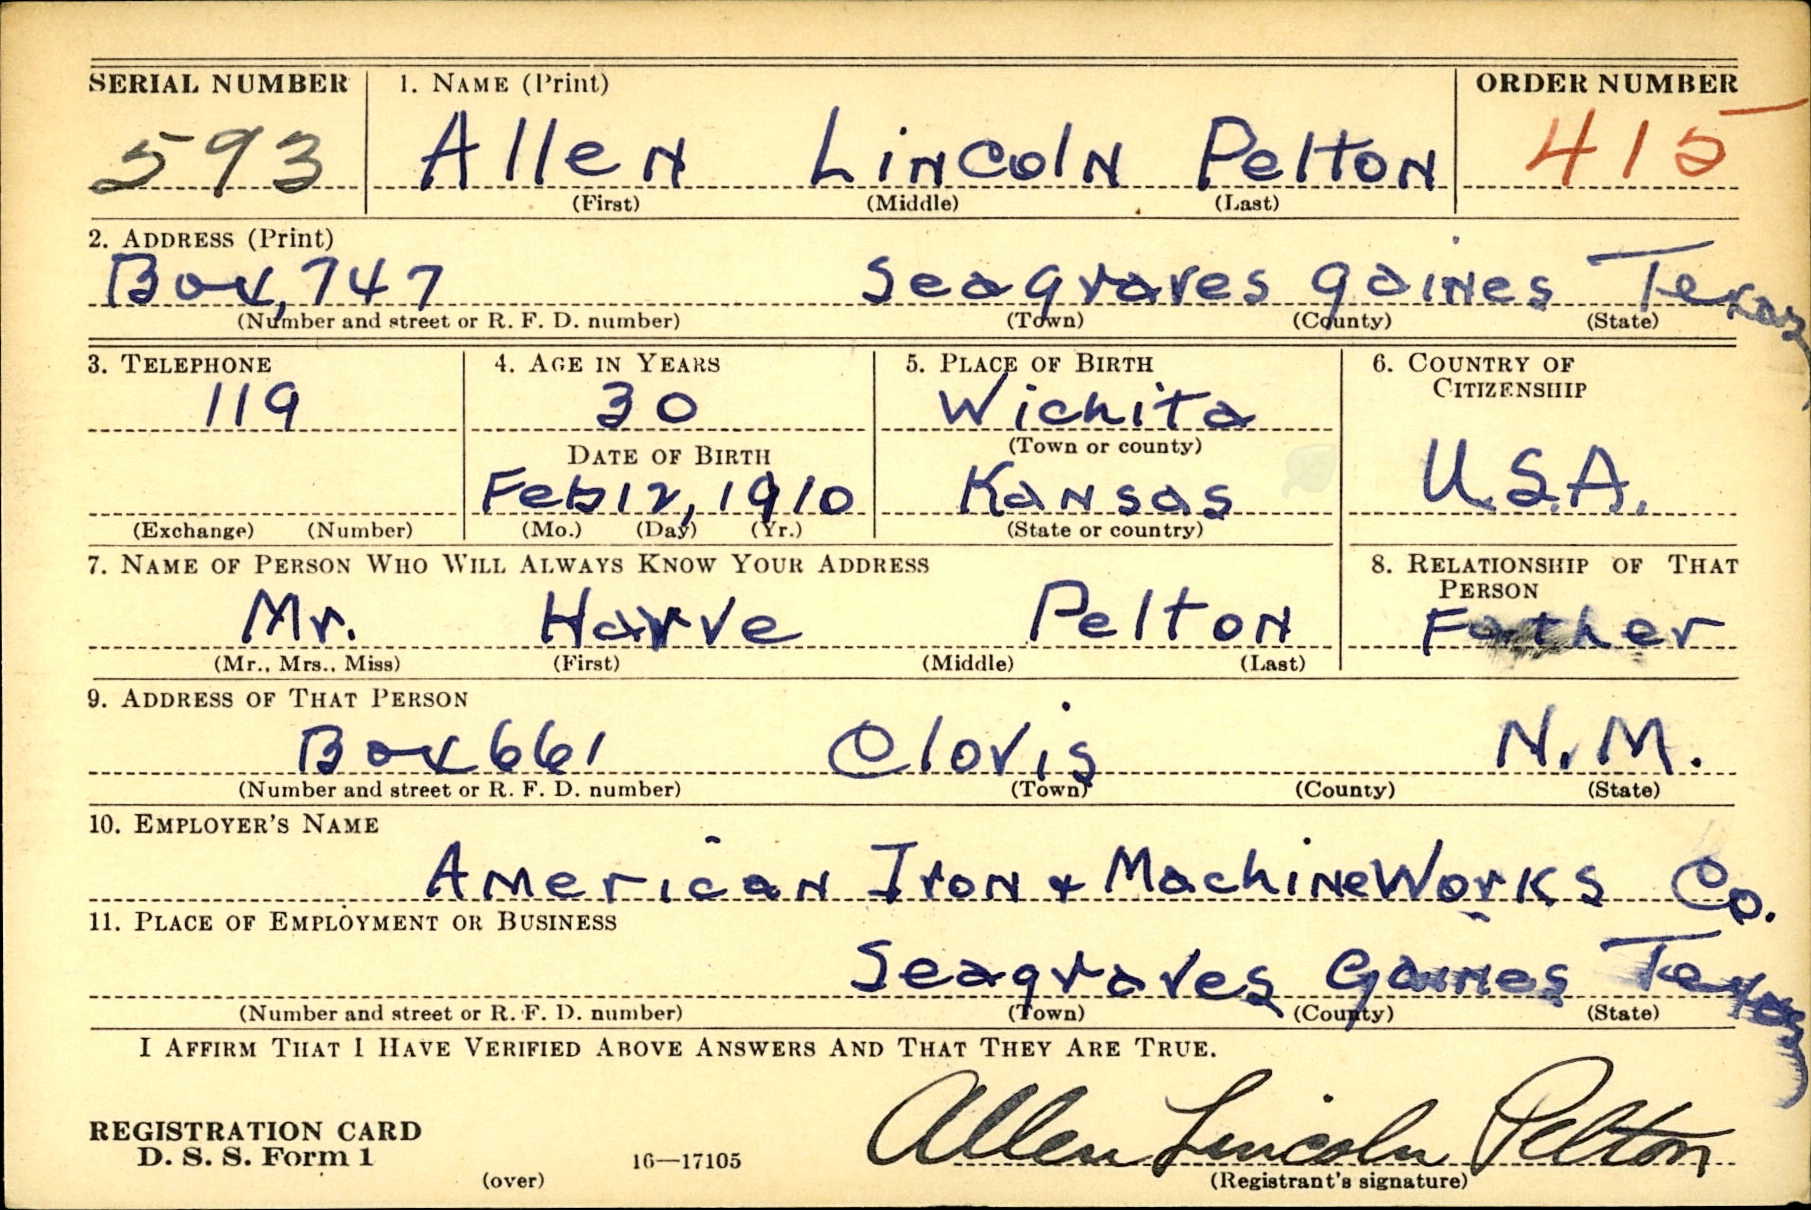 SERIAL NUMBER 1. NAME (Print) ORDER NUMBER
593 Allen Lincoln Pelton 415
(First) (Middle) (Last)
2. ADDRESS (Print)
Box, 747 Seagraves Gaines Texas
(Number and street or R. F. D. number) (Town) (County) (State)
3. TELEPHONE 4. AGE IN YEARS 5. PLACE OF BIRTH 6. COUNTRY OF
CITIZENSHIP
119 30 Wichita
DATE OF BIRTH (Town or county)
Feb 12, 1910 Kansas U.S.A.
(Exchange) (Number) (Mo.) (Day) (Yr.) (State or country)
7. NAME OF PERSON WHO WILL ALWAYS KNOW YOUR ADDRESS 8. RELATIONSHIP OF THAT
PERSON
Mr. Harve Pelton Father
(Mr., Mrs., Miss) (First) (Middle) (Last)
9. ADDRESS OF THAT PERSON
Box 661 Clovis N.M.
(Number and street or R. F. D. number) (Town) (County) (State)
10. EMPLOYER'S NAME
American Iron & Machine Works Co.
11. PLACE OF EMPLOYMENT OR BUSINESS
Seagraves Gaines Texas
(Number and street or R. F. D. number) (Town) (County) (State)
I AFFIRM THAT I HAVE VERIFIED ABOVE ANSWERS AND THAT THEY ARE TRUE.
REGISTRATION CARD
D. S. S. Form 1 16—17105 Allen Lincoln Pelton
(over) (Registrant's signature)